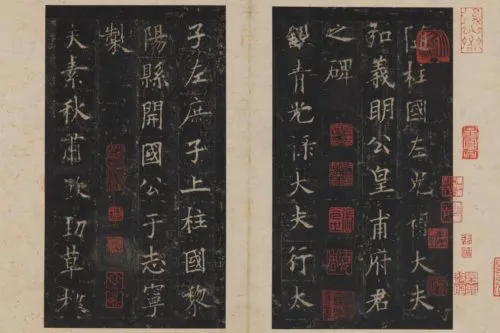 隋柱國左光祿大夫
弘義明公皇甫府君
之碑
銀青光祿大夫行太
子左庶子上柱國黎
陽縣開國公于志寧
製
夫素秋肅煞勁草標